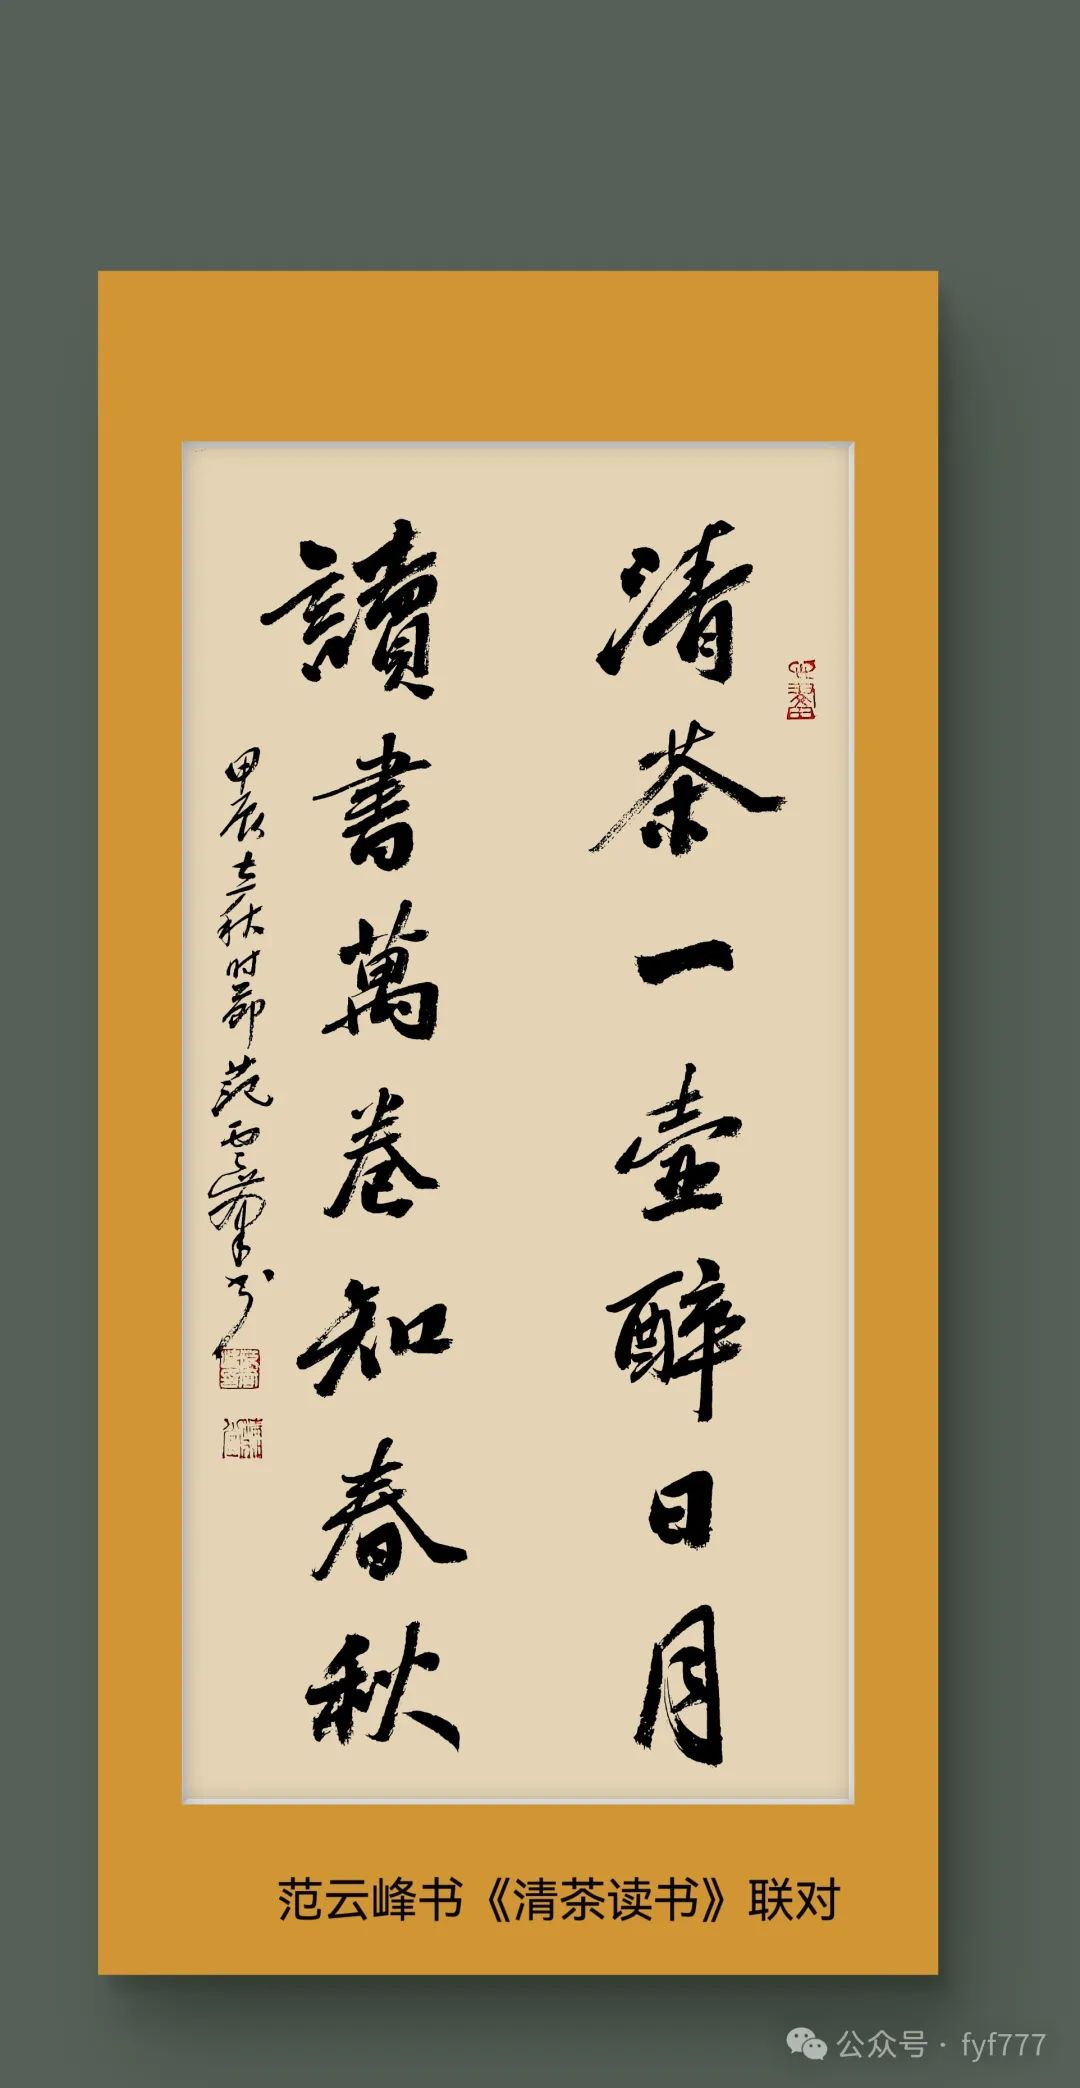 清茶一壺醉日月
讀書萬卷知春秋
甲辰立秋时節范雲峯书
范云峰书《清茶读书》联对
公众号 · fyf777